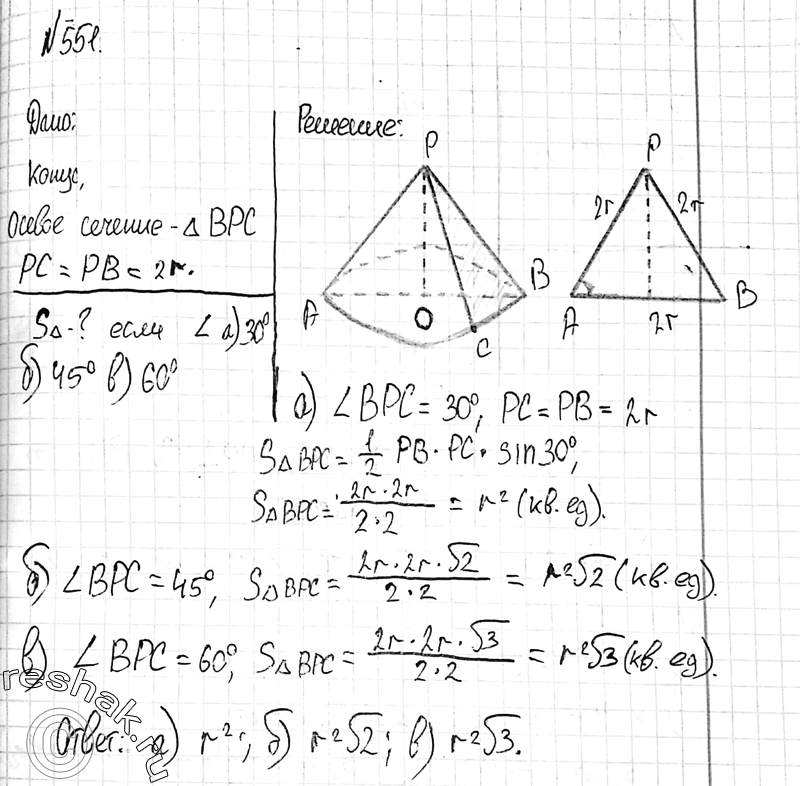 №551.
Дано:
Конус,
Осевое сечение - △ BPC
PC = PB = 2r.
S△ - ? если ∠ а) 30°
б) 45° в) 60°
Решение:
P
A
O
B
C
P
2r
2r
A
2r
B
а) ∠BPC = 30°, PC = PB = 2r
S△BPC = 1/2 PB · PC · sin30°,
S△BPC = 2r · 2r / 2 · 2 = r² (кв. ед).
б) ∠BPC = 45°, S△BPC = 2r · 2r · √2 / 2 · 2 = r²√2 (кв. ед).
в) ∠BPC = 60°, S△BPC = 2r · 2r · √3 / 2 · 2 = r²√3 (кв. ед).
Ответ: а) r²; б) r²√2; в) r²√3.
reshak.ru